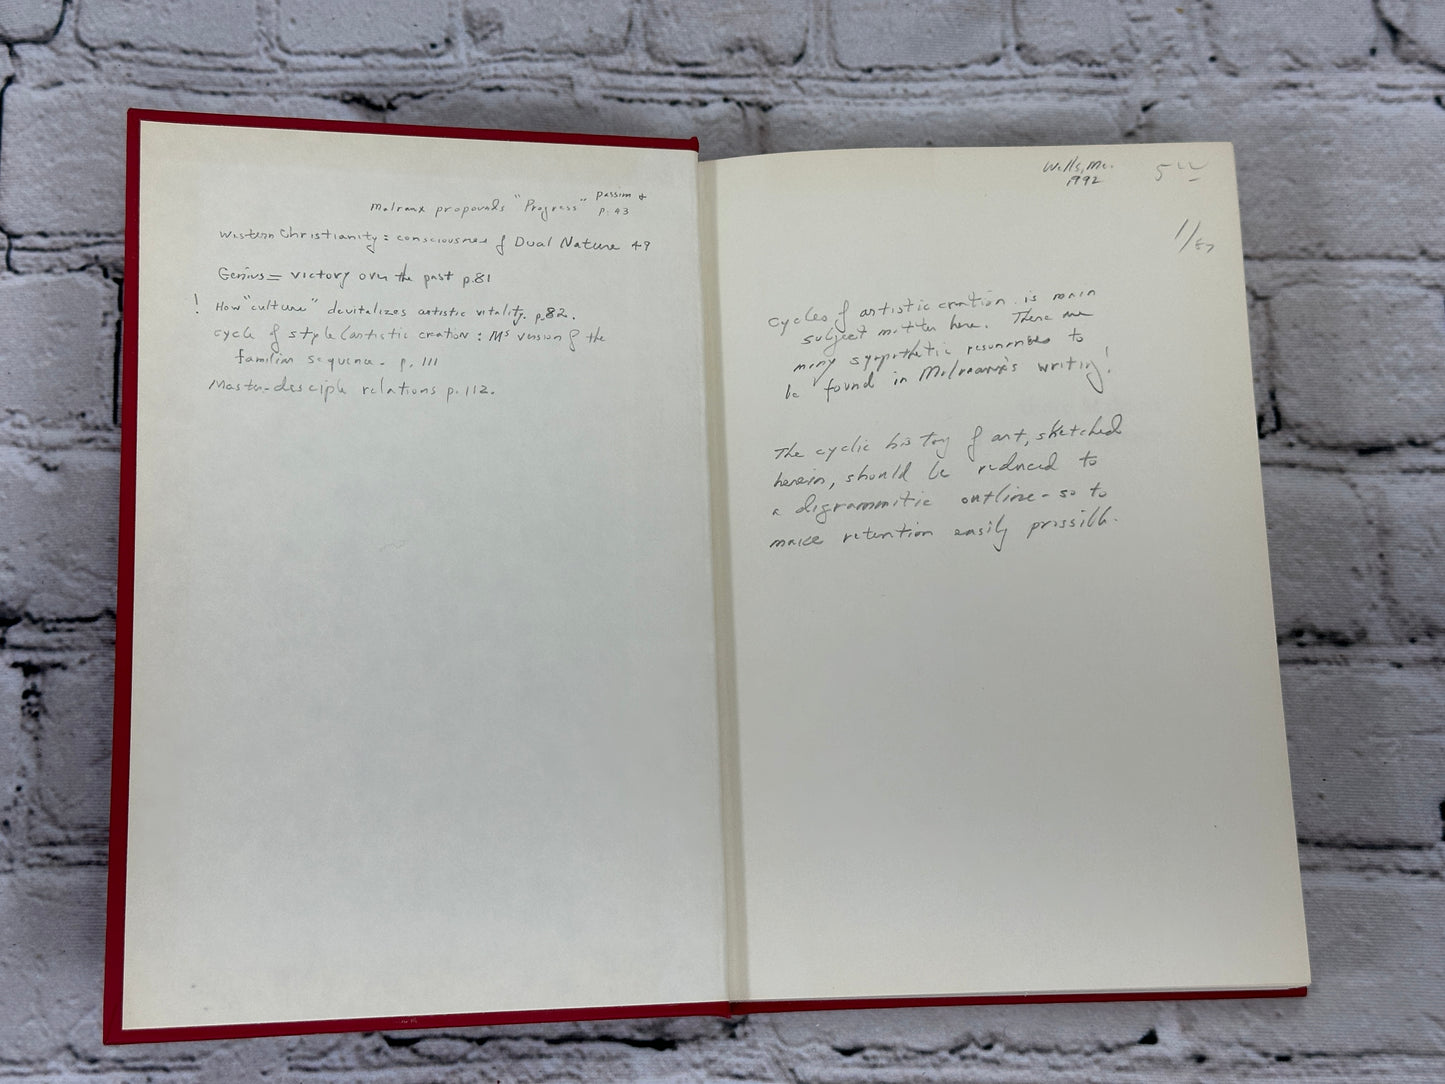 Malraux propounds "Progress" passim &
p. 43
Western Christianity: consciousness of Dual Nature 49
Genius = victory over the past p.81
! How "culture" devitalizes artistic vitality. p.82.
cycle of style/artistic creation: M's version of the
familiar sequence. p. 111
Master-desciple relations p. 112.
Wells, Me.
1992
5
1/87
cycles of artistic creation is main
subject matter here. There are
many sympathetic resonances to
be found in Malraux's writing!
The cyclic history of art, sketched
herein, should be reduced to
a digrammitic outline - so to
make retention easily possible.